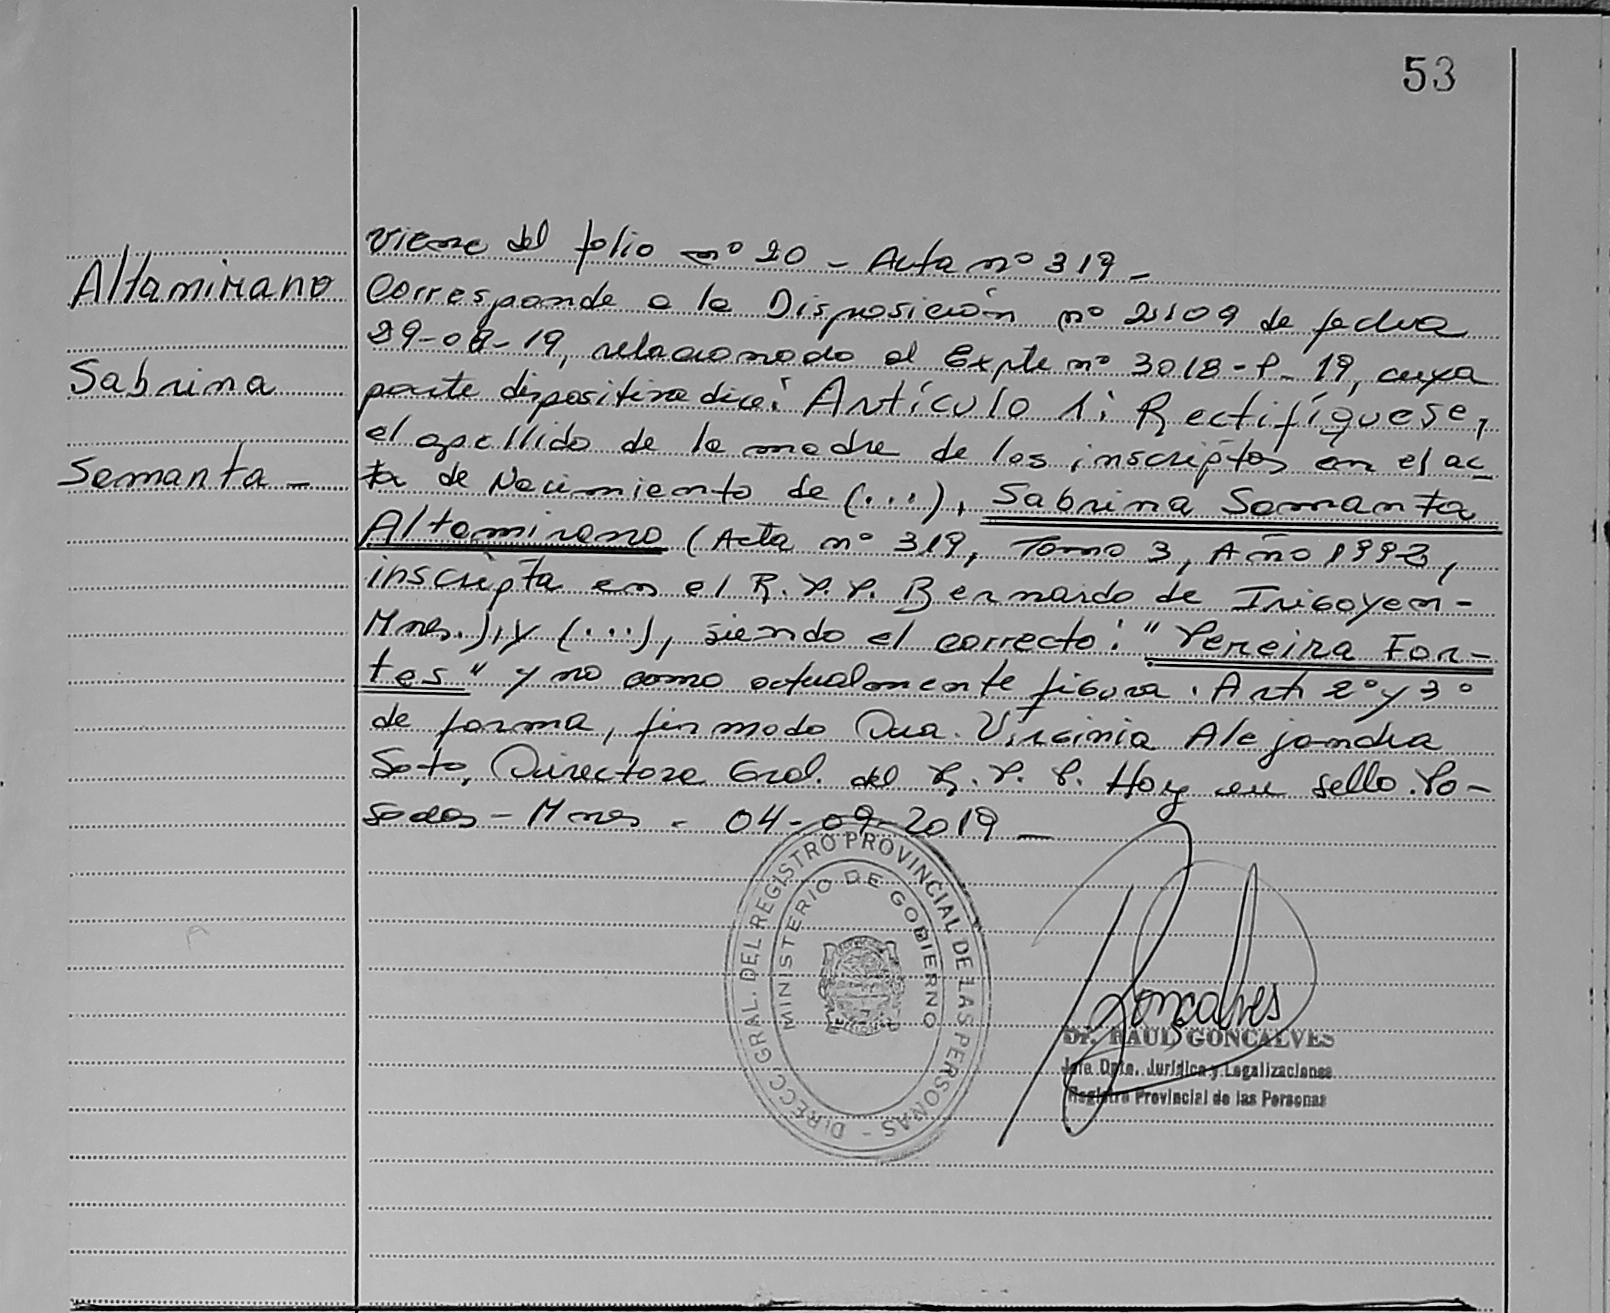 53
Altamirano
Sabrina
Samanta -
Viene del folio nº 20 - Acta nº 319 -
Corresponde a la Disposición nº 2109 de fecha
29-08-19, relacionado al Expte nº 3018-P-19, cuya
parte dispositiva dice: Artículo 1: Rectifíquese,
el apellido de la madre de los inscriptos en el ac
ta de Nacimiento de (...), Sabrina Samanta
Altamirano (Acta nº 319, Tomo 3, Año 1998,
inscripta en el R.P.P. Bernardo de Irigoyen -
Mnes.), y (...), siendo el correcto: "Pereira For-
tes" y no como actualmente figura. Art. 2º y 3º
de forma, firmado Dra. Virginia Alejandra
Soto, Directora Gral. del R.P.P. Hay un sello. Po-
sadas - Mnes - 04-09-2019 -
DIRECC. GRAL. DEL REGISTRO PROVINCIAL DE LAS PERSONAS -
MINISTERIO DE GOBIERNO
Gonçalves
Dr. RAUL GONCALVES
Jefe Dpto. Jurídica y Legalizaciones
Registro Provincial de las Personas